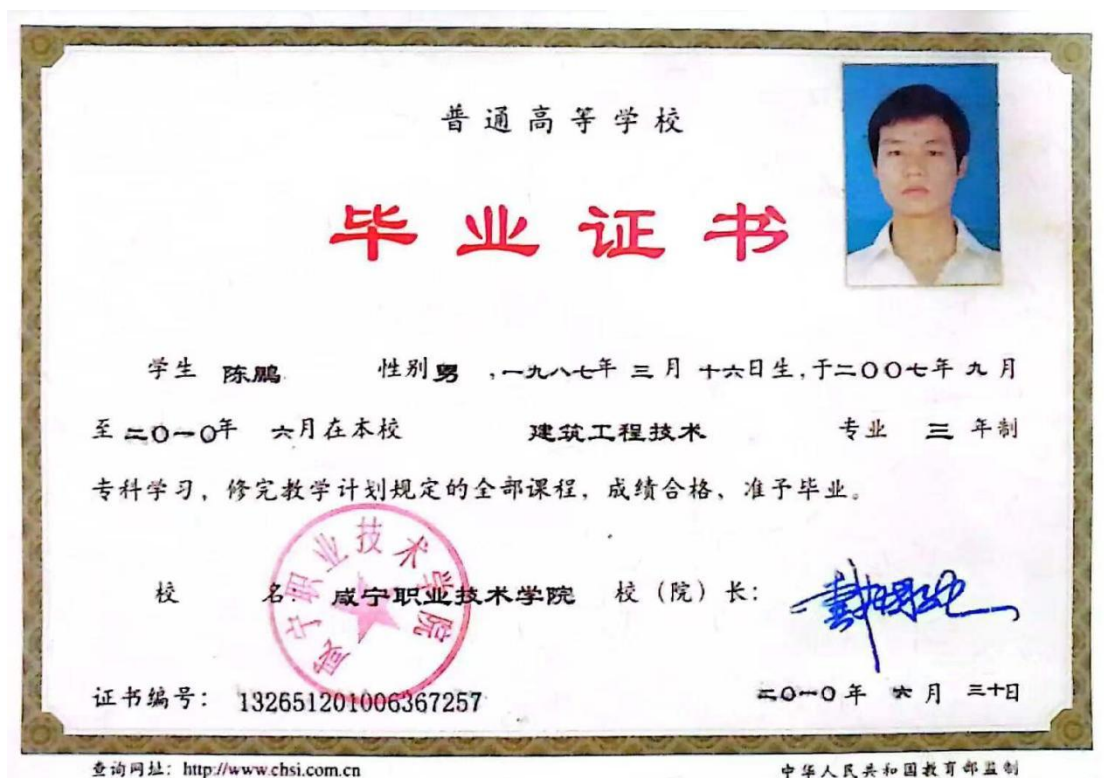 普通高等学校
毕业证书
学生 陈鹏 性别 男 ,一九八七年 三月 十六日生,于二〇〇七年 九月
至二〇一〇年 六月在本校 建筑工程技术 专业 三 年制
专科学习,修完教学计划规定的全部课程,成绩合格,准予毕业。
咸宁职业技术学院
校 名: 咸宁职业技术学院 校(院)长:
证书编号: 132651201006367257 二〇一〇年 六月 三十日
查询网址: http://www.chsi.com.cn 中华人民共和国教育部监制